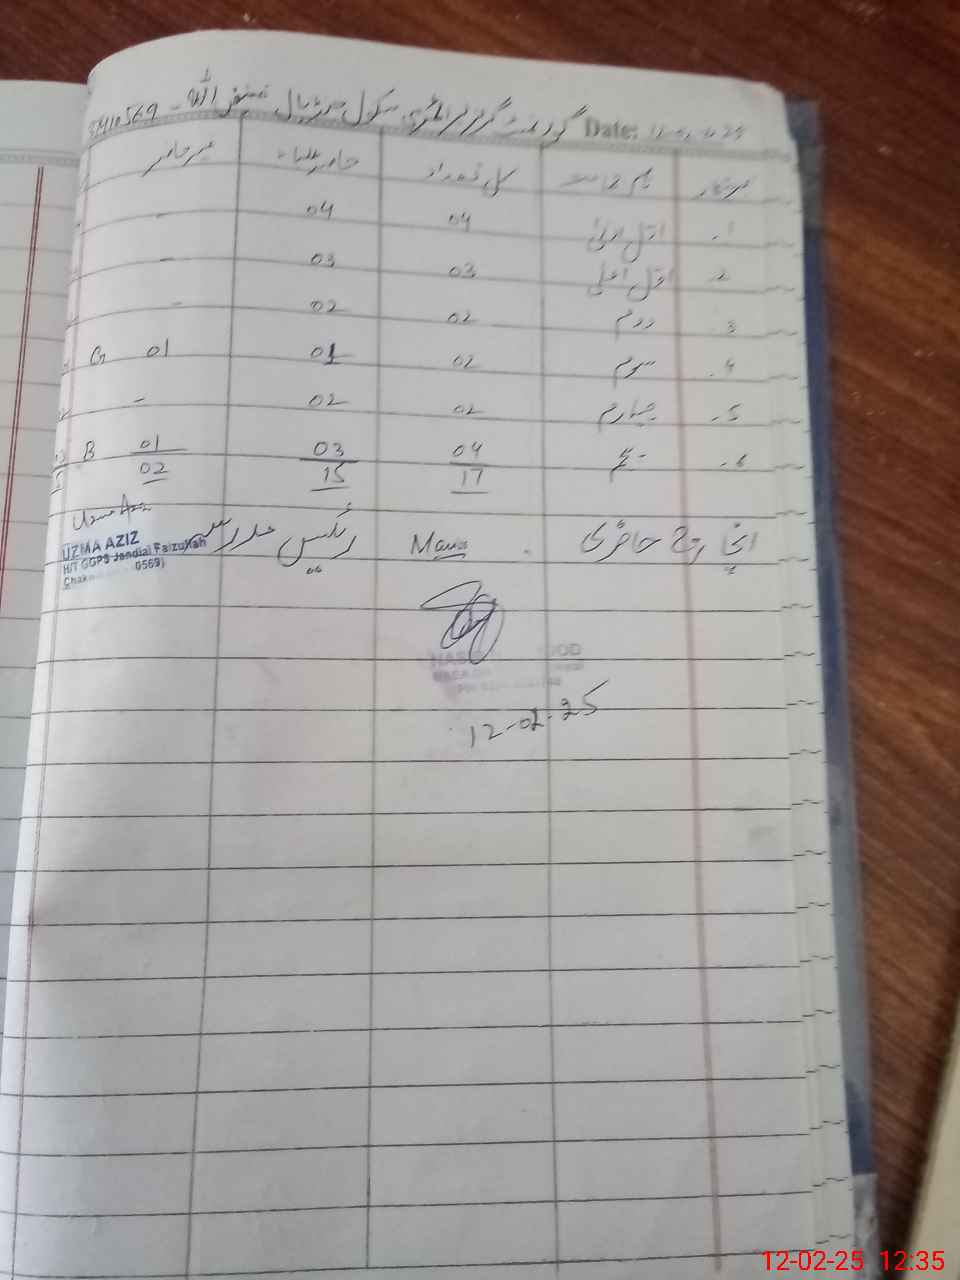 گورنمنٹ گرلز پرائمری سکول جنڈیال فیض اللہ - 10569 Date: 12-02-2025
نمبر شمار نام جماعت کل تعداد حاضر طلباء غیر حاضر
1. اول ادنیٰ 04 04 -
2. اول اعلیٰ 03 03 -
3. دوم 02 02 -
4. سوم 02 01 01 G
5. چہارم 02 02 -
6. پنجم 04 03 01 B
17 15 02
انچارج حاضری رئیس مدرسہ
Uzma Aziz
UZMA AZIZ
H/T GGPS Jandial Faizullah
0569)
12-02-25
12-02-25 12:35